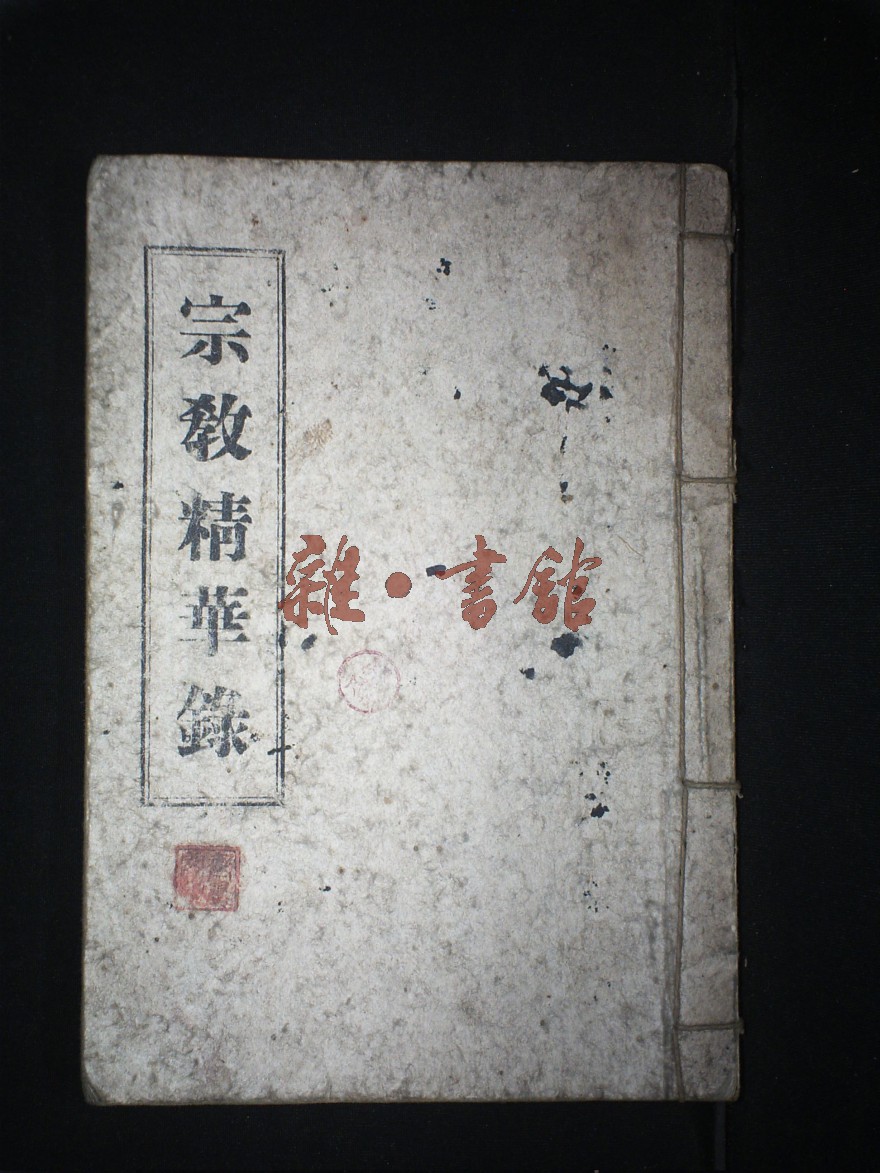 宗教精華錄
雜·書館